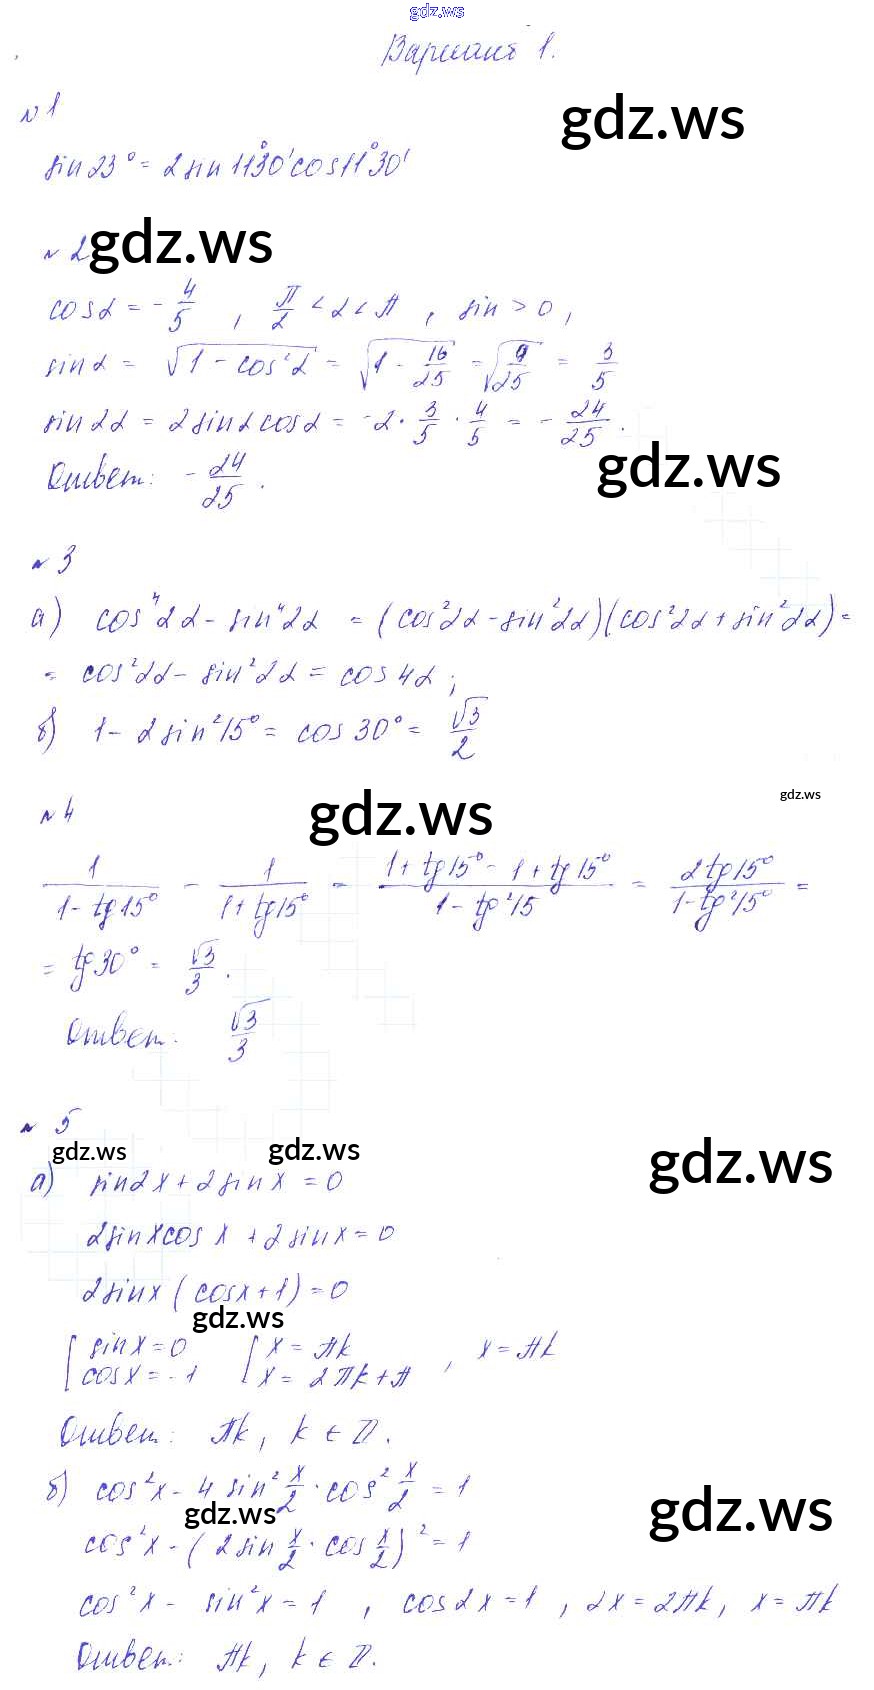 gdz.ws
Вариант 1.
№ 1
gdz.ws
sin 23° = 2 sin 11°30' cos 11°30'
№ 2
gdz.ws
cos α = - 4/5 , π/2 < α < π , sin > 0 ,
sin α = √(1 - cos² α) = √(1 - 16/25) = √(9/25) = 3/5
sin 2α = 2 sin α cos α = -2 · 3/5 · 4/5 = - 24/25 .
Ответ: - 24/25 .
gdz.ws
№ 3
а) cos⁴ 2α - sin⁴ 2α = (cos² 2α - sin² 2α)(cos² 2α + sin² 2α) =
= cos² 2α - sin² 2α = cos 4α ;
б) 1 - 2 sin² 15° = cos 30° = √3/2
№ 4
gdz.ws
gdz.ws
1/(1 - tg 15°) - 1/(1 + tg 15°) = (1 + tg 15° - 1 + tg 15°)/(1 - tg² 15) = 2 tg 15°/(1 - tg² 15°) =
= tg 30° = √3/3 .
Ответ: √3/3
№ 5
gdz.ws
gdz.ws
gdz.ws
а) sin 2x + 2 sin x = 0
2 sin x cos x + 2 sin x = 0
2 sin x (cos x + 1) = 0
gdz.ws
[ sin x = 0 [ x = πk , x = πk
cos x = -1 x = 2πk + π
Ответ: πk, k ∈ Z.
б) cos² x - 4 sin² x/2 · cos² x/2 = 1
gdz.ws
gdz.ws
cos² x - (2 sin x/2 · cos x/2)² = 1
cos² x - sin² x = 1 , cos 2x = 1 , 2x = 2πk, x = πk
Ответ: πk, k ∈ Z.